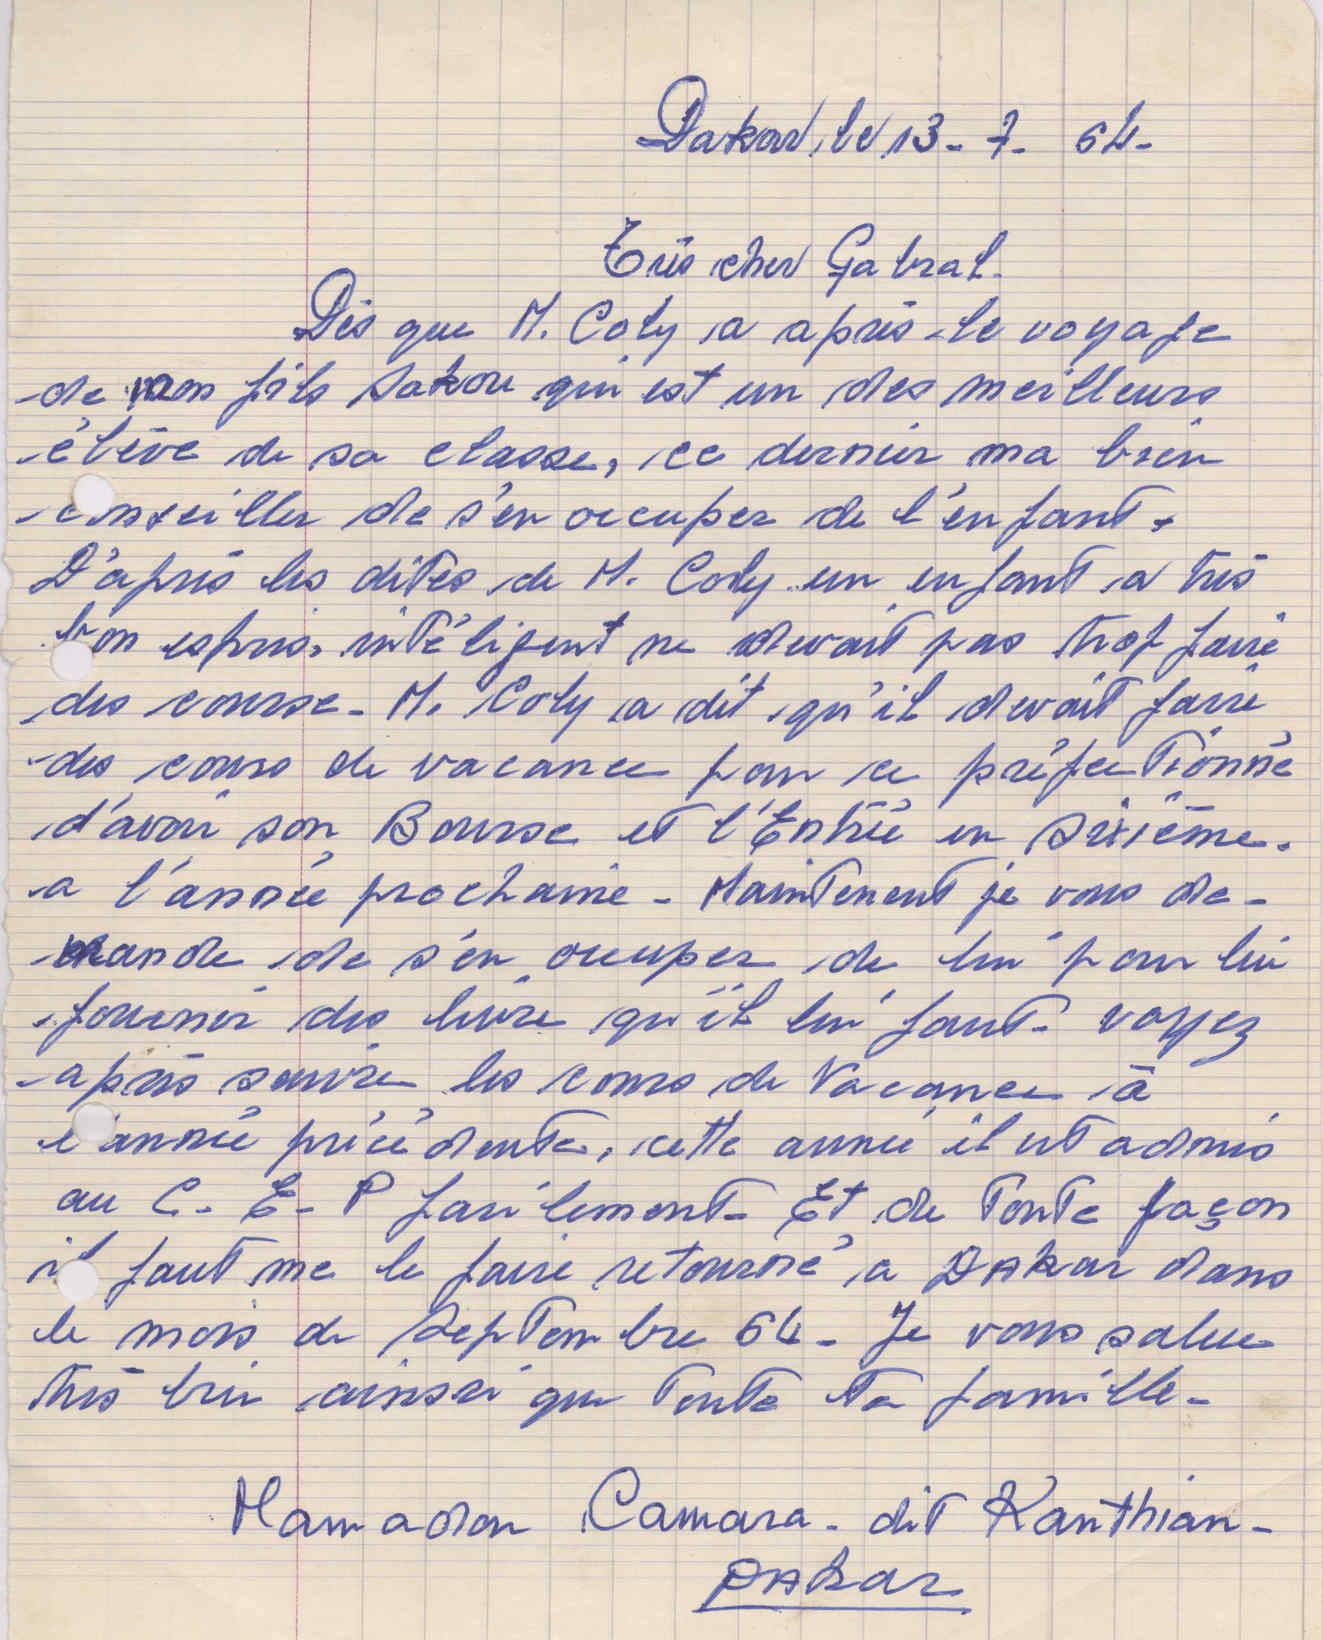 Dakar, le 13-7-64-
Très cher Gabral-
Dès que M. Coly a après le voyage
de mon fils Sakou qui est un des meilleurs
élève de sa classe, ce dernier ma bien
conseiller de s'en occuper de l'enfant.
D'après les dites de M. Coly un enfant a très
bon espris, intéligent ne devait pas trop faire
des course- M. Coly a dit qu'il devait faire
des cours de vacance pour ce préfectionné
d'avoir son Bourse et l'Entrée en Sixième.
a l'année prochaine- Maintenent je vous de-
mande de s'en occuper de lui pour lui
fournir des livre qu'il lui faut- voyez
après suivre les cours de Vacance à
l'année précédente, cette année il est admis
au C-E-P facilement- Et de toute façon
il faut me le faire retourné a DAKar dans
le mois de Septembre 64- Je vous salue
très bien ainsi que toute ta famille-
Mamadou Camara- dit Kanthian-
DAKar